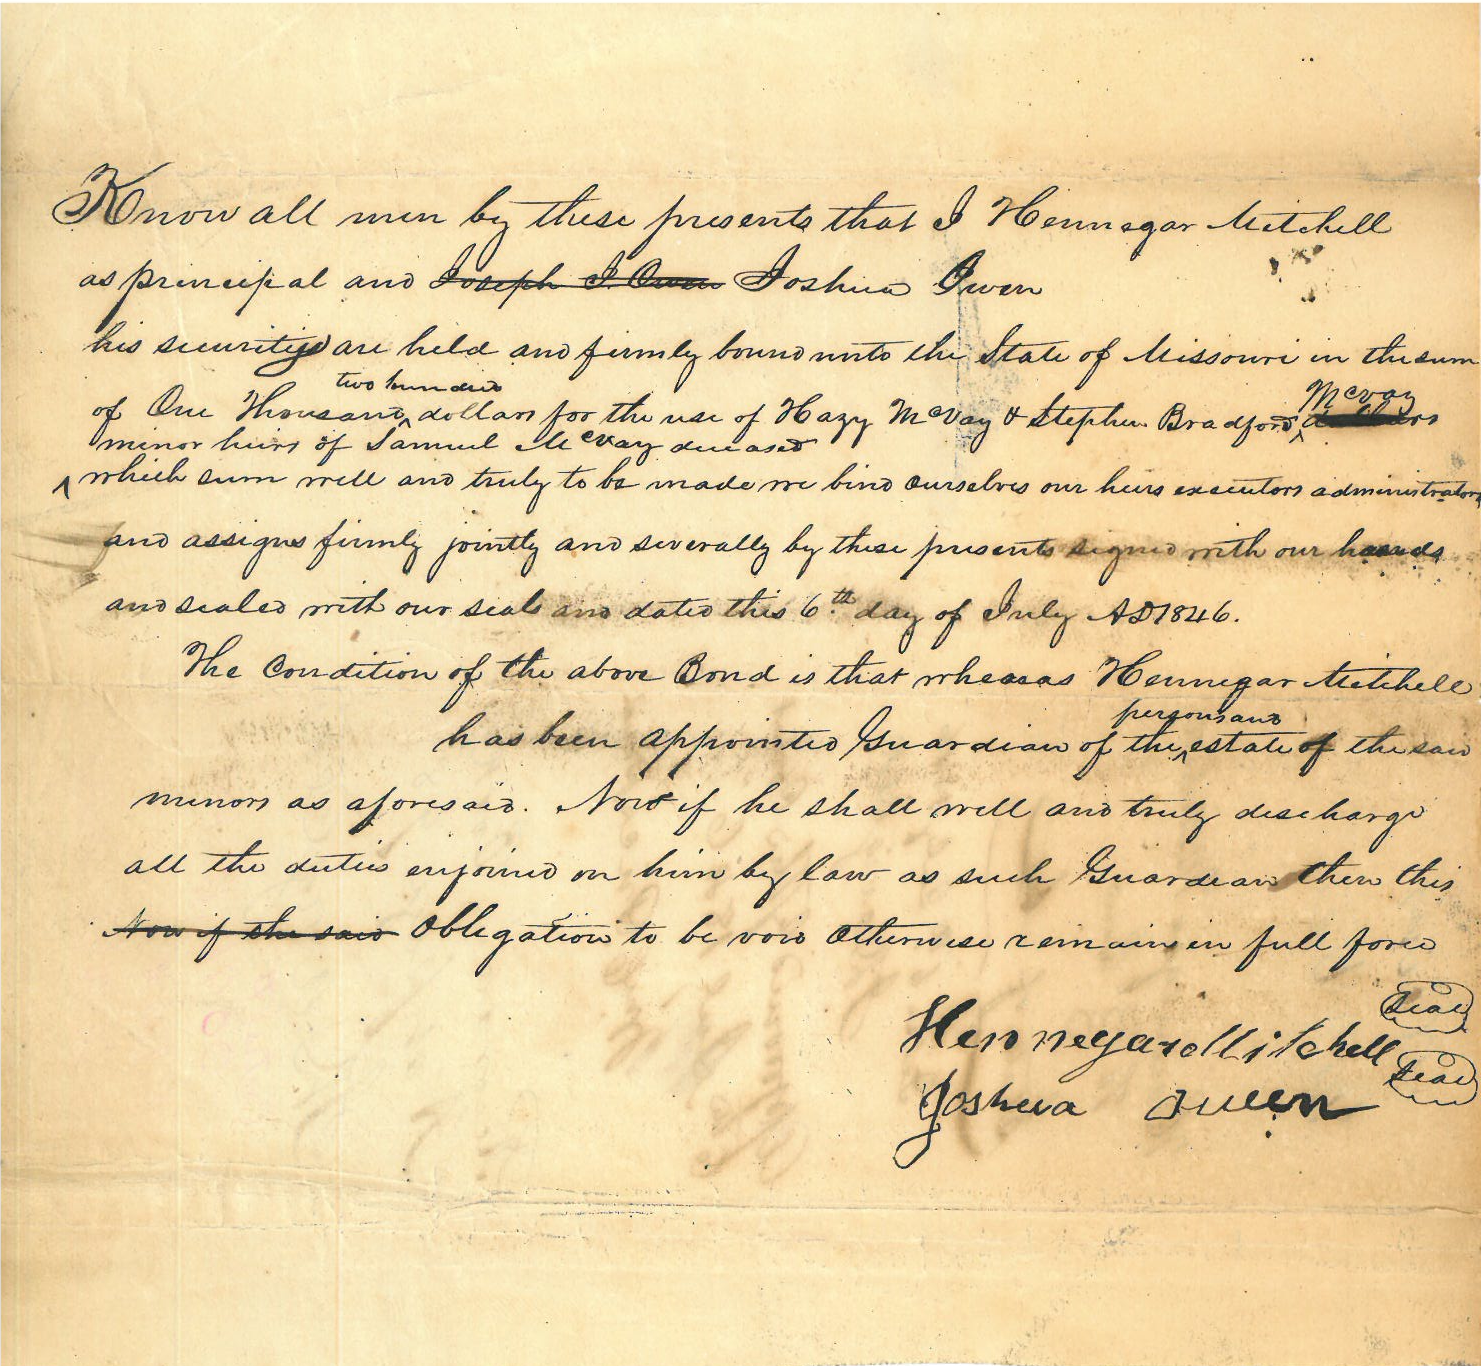 Know all men by these presents that I Hennegar Mitchell
as principal and Joseph I. Owen Joshua Owen
his securities are held and firmly bound unto the State of Missouri in the sum
two hundred
of One Thousand dollars for the use of Hazy McVay & Stephen Bradford McVay
minor heirs of Samuel McVay deceased
which sum well and truly to be made we bind ourselves our heirs executors administrators
and assigns firmly jointly and severally by these presents signed with our hands
and sealed with our seals and dated this 6th day of July AD 1846.
The Condition of the above Bond is that whereas Hennegar Mitchell
persons and
has been appointed Guardian of the estate of the said
minors as aforesaid. Now if he shall well and truly discharge
all the duties enjoined on him by law as such Guardian then this
Now if the said Obligation to be void Otherwise remain in full force
Hennegar Mitchell Seal
Joshua Owen Seal